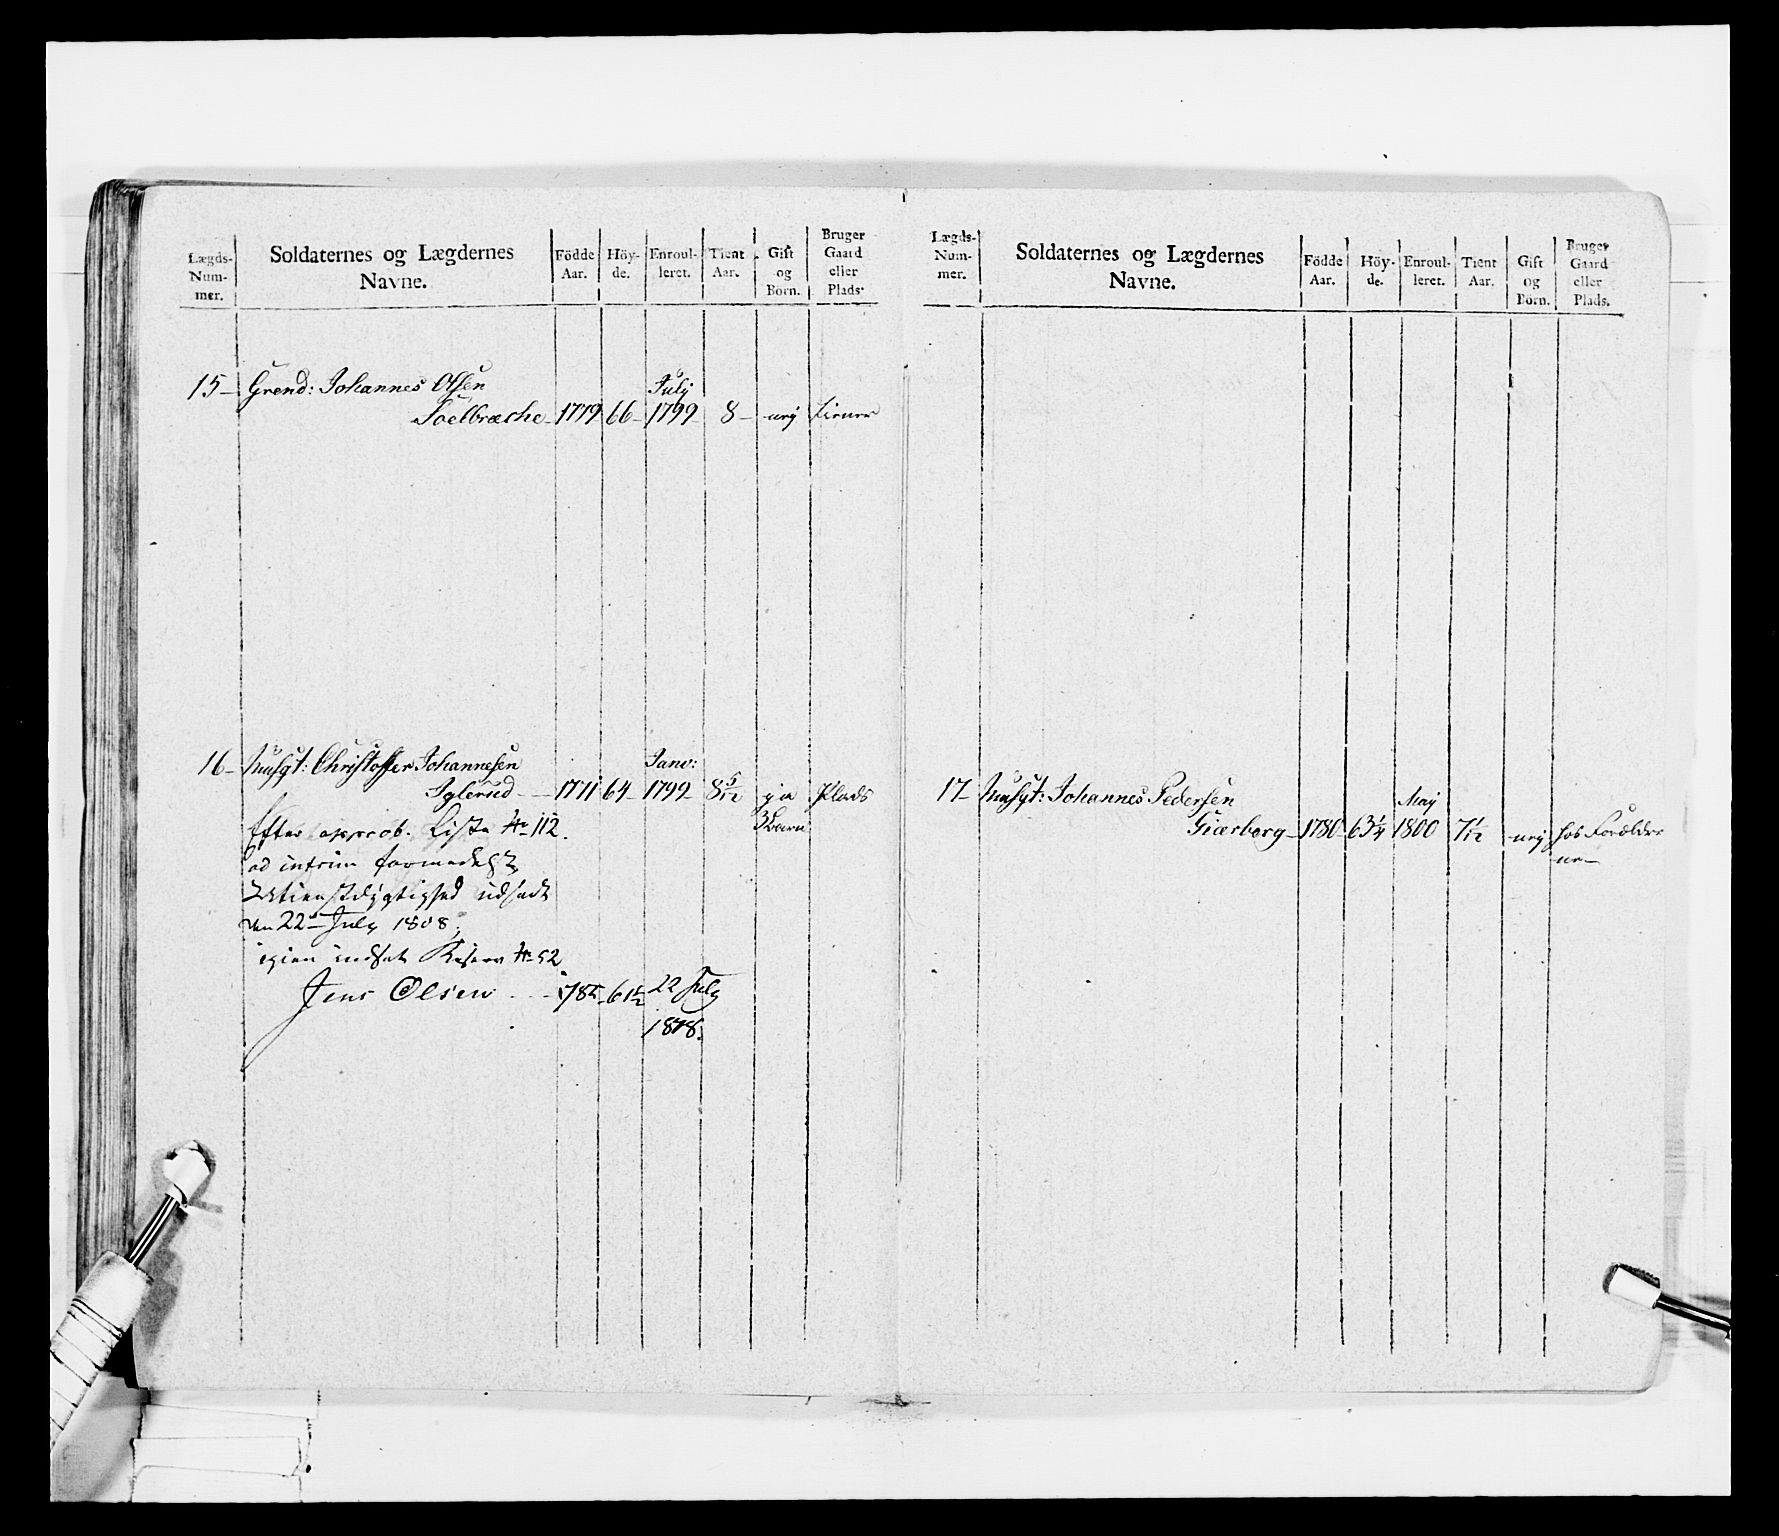 Lægds-
Num-
mer.
Soldaternes og Lægdernes
Navne.
Födde
Aar.
Höy-
de.
Enroul-
leret.
Tient
Aar.
Gift
og
Börn.
Bruger
Gaard
eller
Plads.
15 - Grend: Johannes Olsen
July
Soelbræche - 1779 66 - 1799 - 8 - neij Tiener
16 - Musqt: Christoffer Johannesen
Janv:
Iglerud - 1771 64 - 1799 - 8 5/12 ja Plads
3 Børn
Efter approb. Liste No 112.
ad intrim formedelst
Utienstdygtighed udsadt
den 22de July 1808,
igien indsat Reserv No 52
Jens Olsen - 1785 - 61 1/2 22 July
1808.
Lægds-
Num-
mer.
Soldaternes og Lægdernes
Navne.
Födde
Aar.
Höy-
de.
Enroul-
leret.
Tient
Aar.
Gift
og
Börn.
Bruger
Gaard
eller
Plads.
17 - Musqt: Johannes Pedersen
May
Giærberg - 1780 63 1/4 1800 7 1/12 - neij hos Forældre
ne -